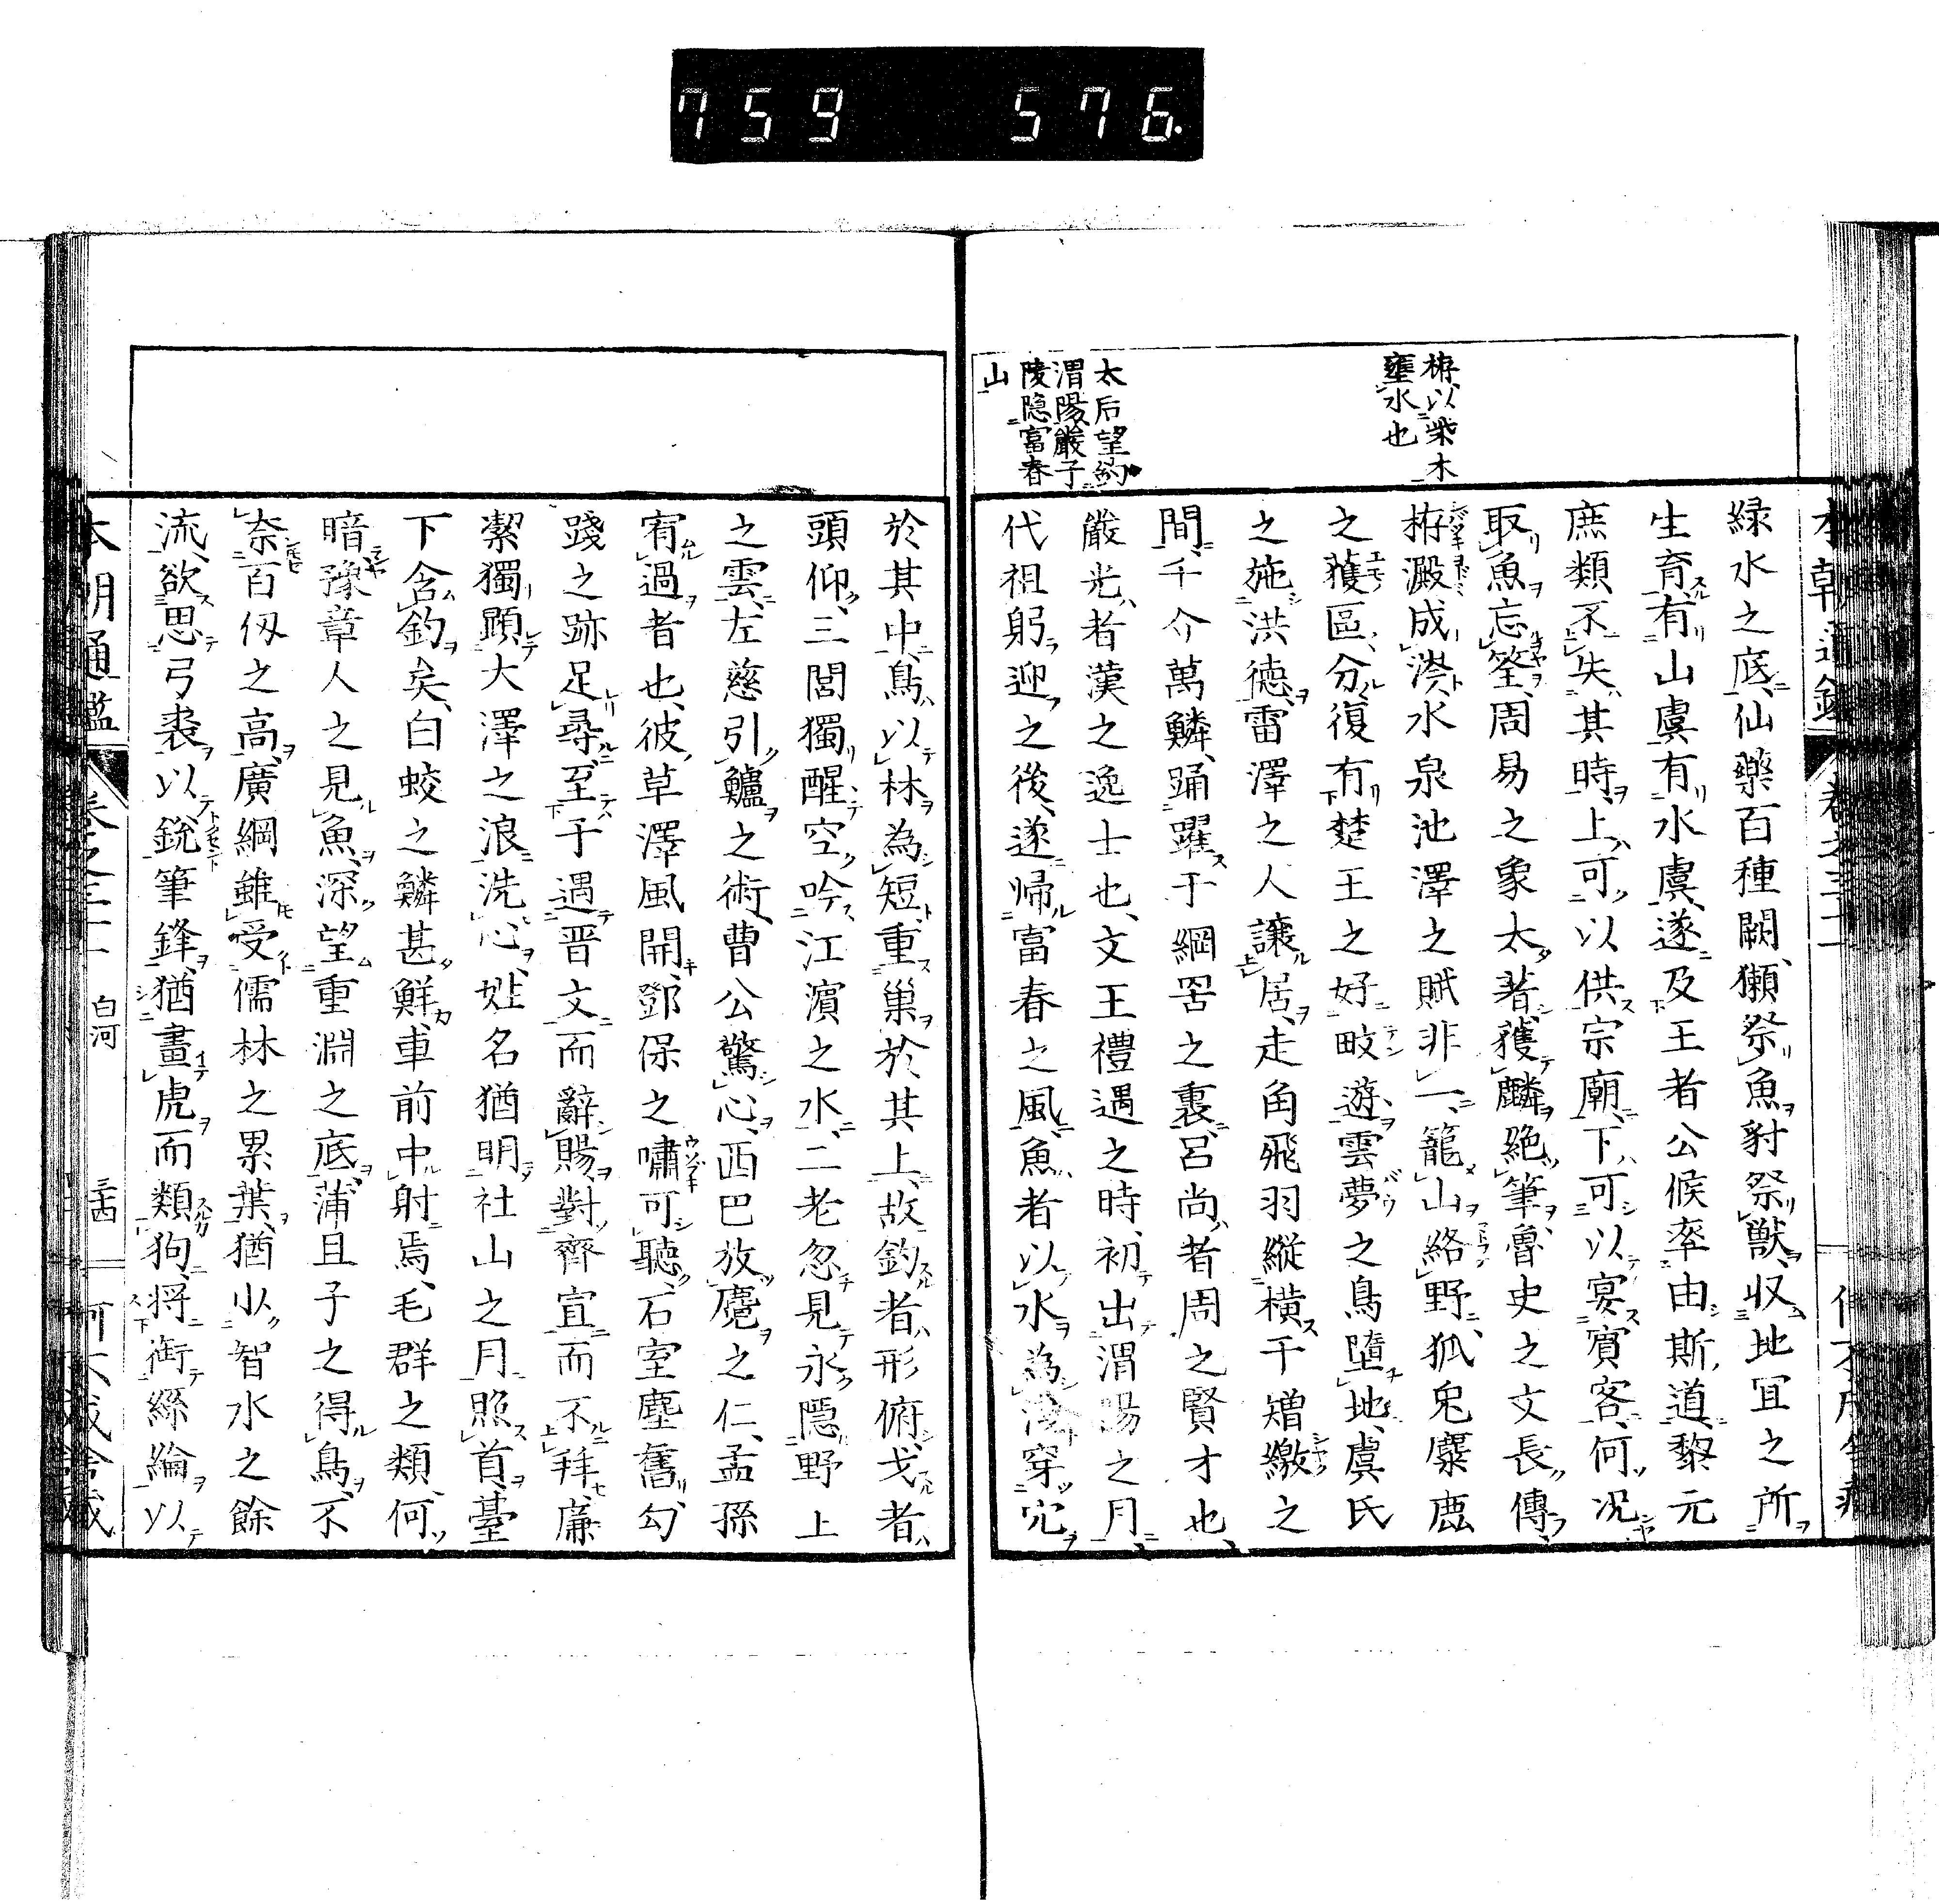 759 576.
栫以柴木
壅水也
太后望釣
渭陽嚴子
陵隱富春
山
緑水之底仙藥百種闕獺祭魚豺祭獸収地冝之所
生育有山虞有水虞遂及王者公候率由斯道黎元
庶類不失其時上可以供宗廟下可以宴賓客何況
取魚忘筌周易之象太著獲麟絶筆魯史之文長傳
栫澱成涔水泉池澤之賦非一籠山絡野狐兎麋鹿
之獲區分復有楚王之好畋遊雲夢之鳥墮地虞氏
之施洪徳雷澤之人讓居走角飛羽縱横于矰繳之
間千介萬鱗踊躍于綱罟之裏呂尚者周之賢才也
嚴光者漢之逸士也文王禮遇之時初出渭陽之月
代祖躬迎之後遂帰富春之風魚者以水為淺穿穴
於其中鳥以林為短重巢於其上故釣者形俯弋者
頭仰三閭獨醒空吟江濱之水二老忽見永隱野上
之雲左慈引鱸之術曹公驚心西巴放麑之仁孟孫
宥過者也彼草澤風開鄧保之嘯可聽石室塵舊勾
踐之跡足尋至于遇晋文而辭賜對齊宣而不拜廉
潔獨顕大澤之浪洗心姓名猶明社山之月照首臺
下含釣矣白蛟之鱗甚鮮車前中射焉毛群之類何
暗豫章人之見魚深望重淵之底蒲且子之得鳥不
奈百仭之高廣綱雖受儒林之累葉猶少智水之餘
流欲思弓裘以銃筆鋒猶畫虎而類狗将銜絲綸以
本朝通鑑 卷之三十 白河 三十四